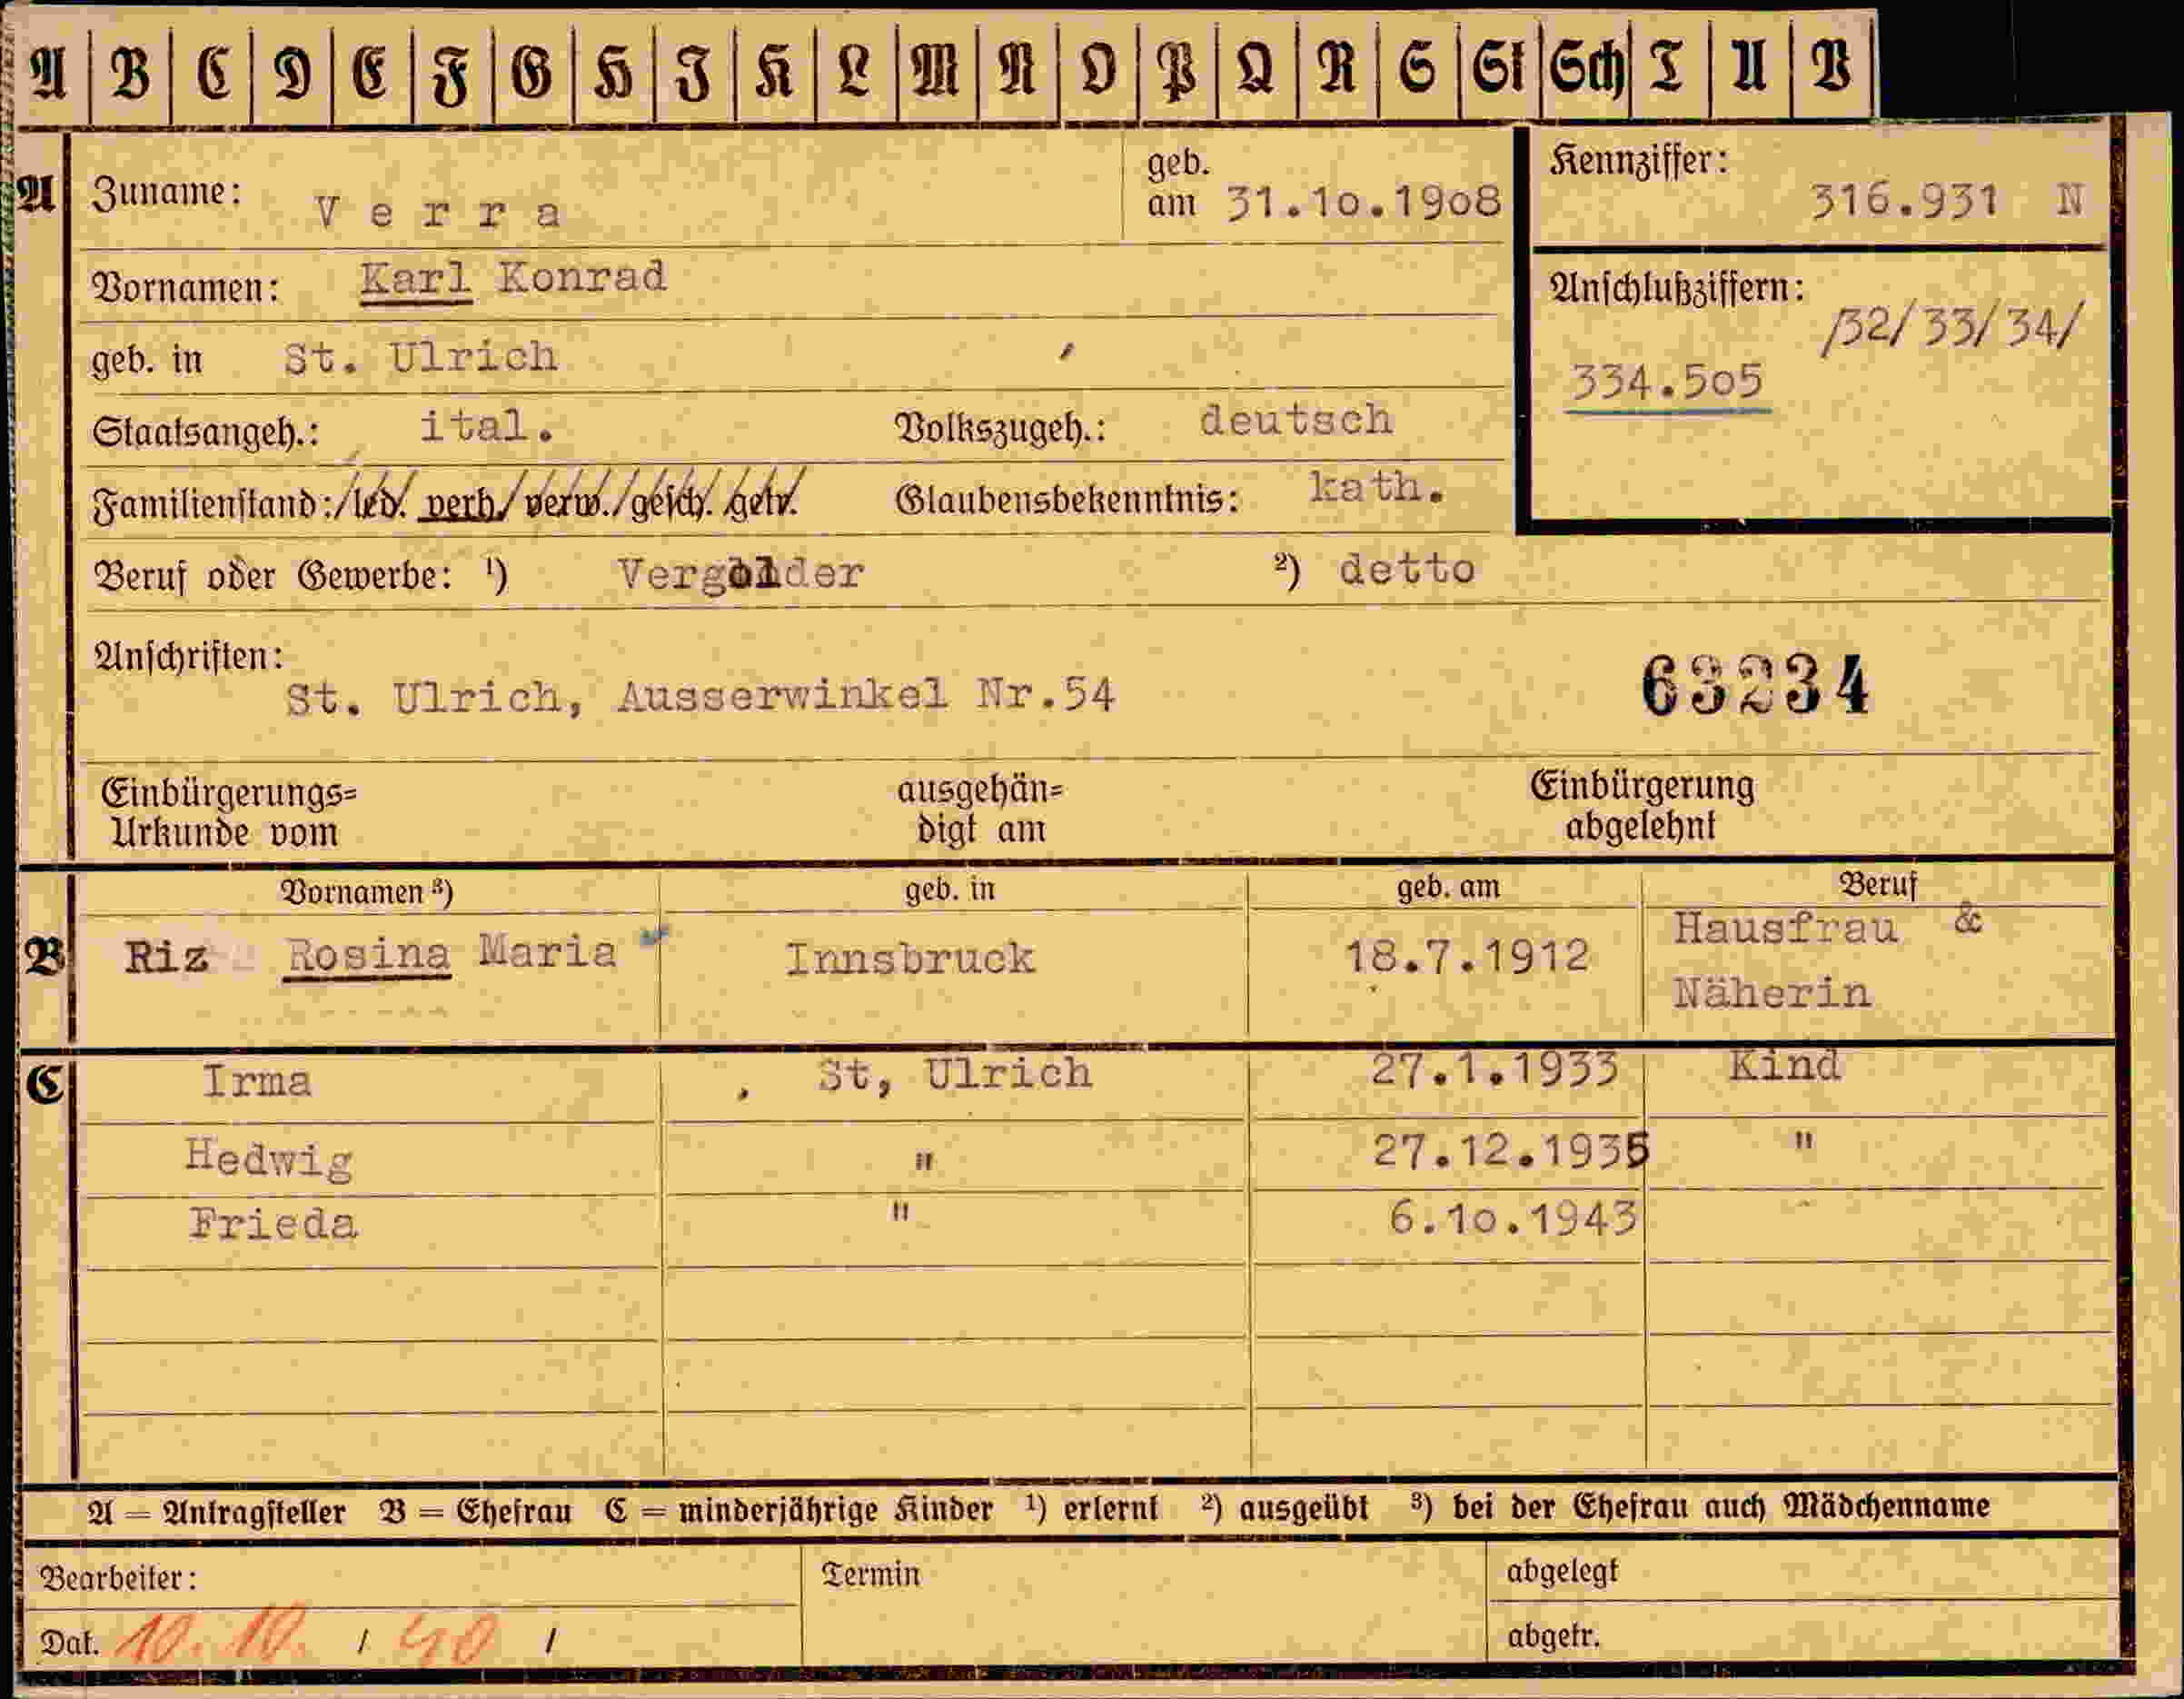 A B C D E F G H I K L M N O P Q R S St Sch T U V
A Zuname: Verra geb. am 31.10.1908 Kennziffer: 316.931 N
Vornamen: Karl Konrad
Anschlußziffern: /32/33/34/
geb. in St. Ulrich
334.505
Staatsangeh.: ital. Volkszugeh.: deutsch
Familienstand: /led. verh./verw./gesch. getr. Glaubensbekenntnis: kath.
Beruf oder Gewerbe: ¹) Vergolder ²) detto
Anschriften:
St. Ulrich, Ausserwinkel Nr.54 63234
Einbürgerungs= ausgehän= Einbürgerung
Urkunde vom digt am abgelehnt
Vornamen ³) geb. in geb. am Beruf
B Riz Rosina Maria Innsbruck 18.7.1912 Hausfrau &
Näherin
C Irma St, Ulrich 27.1.1933 Kind
Hedwig " 27.12.1935 "
Frieda " 6.10.1943
A = Antragsteller B = Ehefrau C = minderjährige Kinder ¹) erlernt ²) ausgeübt ³) bei der Ehefrau auch Mädchenname
Bearbeiter: Termin abgelegt
Dat. 10. 10. / 40 / abgetr.